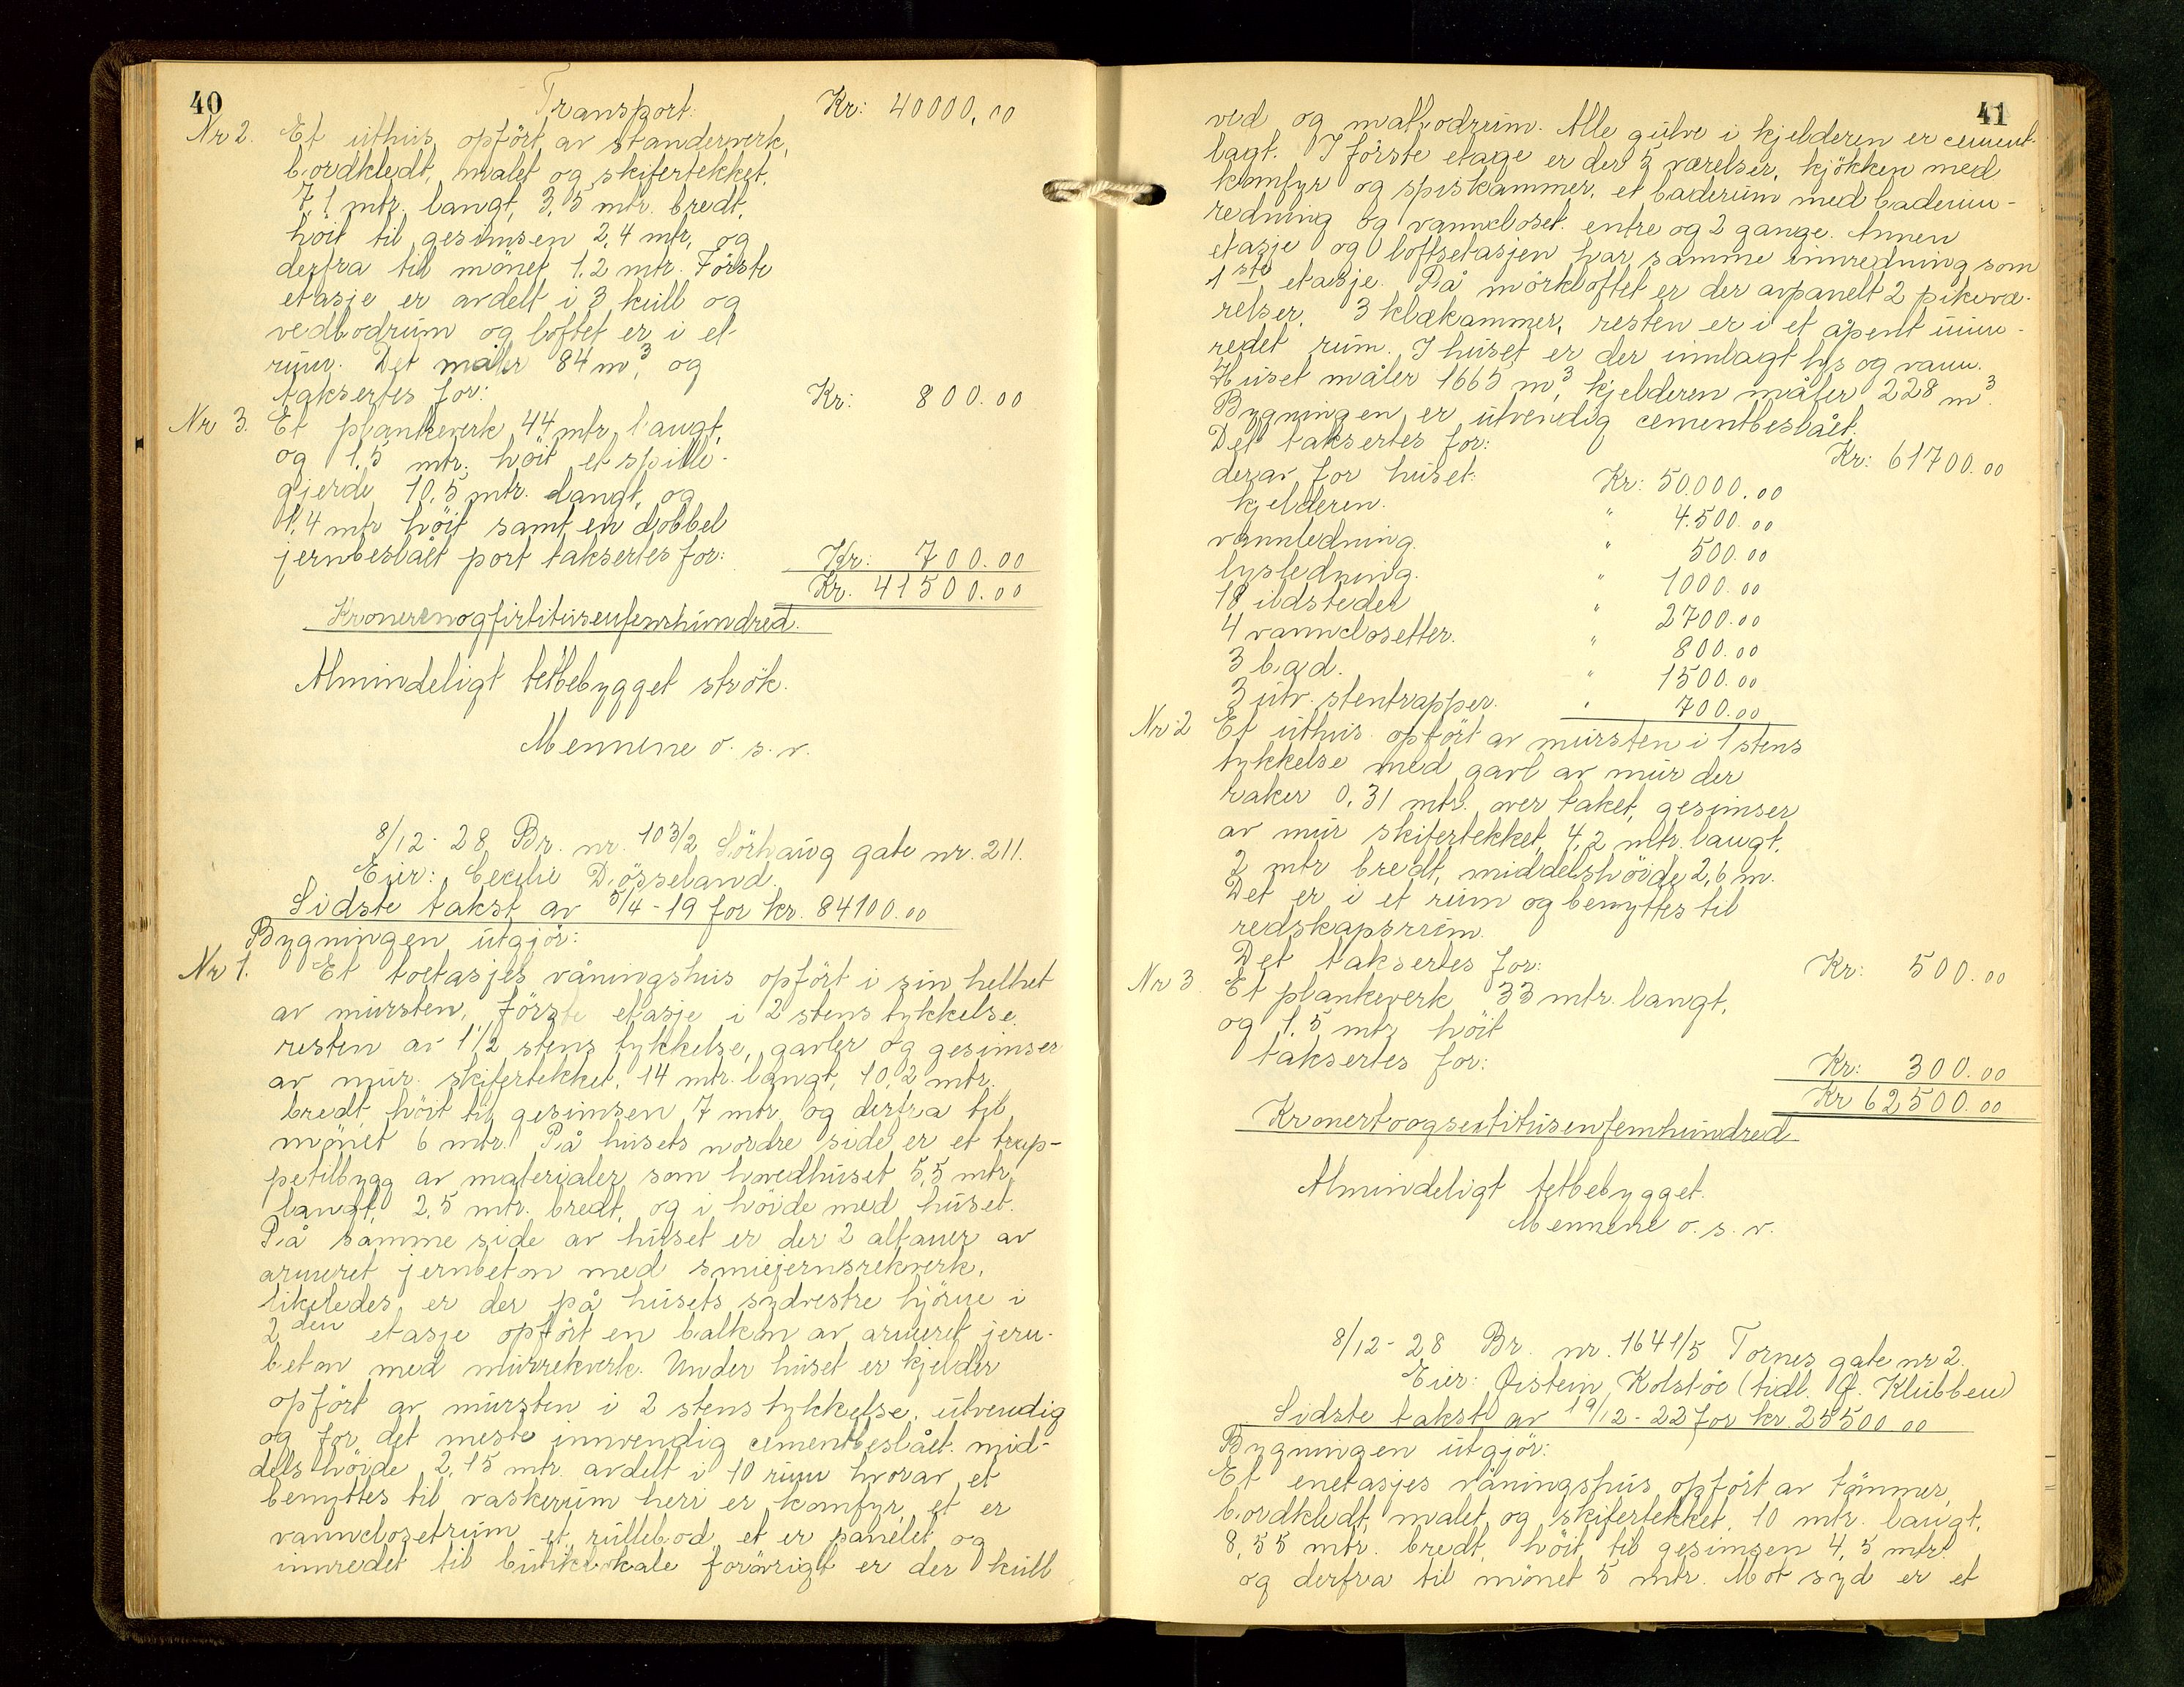 40
Transport: Kr: 40000,00
Nr 2. Et uthus opfört av standerverk,
bordkledt, malet og skifertekket.
7,1 mtr. langt, 3,5 mtr. bredt,
höit til gesimsen 2,4 mtr, og
derfra til mönet 1,2 mtr. Förste
etasje er avdelt i 3 kull og
vedbodrum og loftet er i et
rum. Det måler 84 m³, og
taksertes for: Kr: 800.00
Nr 3. Et plankeverk 44 mtr. langt,
og 1,5 mtr. höit et spille-
gjerde 10,5 mtr. langt, og
1,4 mtr höit samt en dobbel
jernbeslåět port taksertes for: Kr: 700.00
Kr. 41500.00
Kronerenogfirtitusenfemhundred.
Almindeligt tetbebygget strök.
Mennene o. s. v.
8/12- 28 Br. nr. 103/2 Sörhaug gate nr. 211.
Eier: Cecilie Dösseland.
Sidste takst av 5/4-19 for kr. 84100.00
Bygningen utgjör:
Nr 1. Et toetasjes våningshus opfört i sin helhet
av mursten, förste etasje i 2 stens tykkelse
resten av 1 1/2 stens tykkelse, gavler og gesimser
av mur. skifertekket, 14 mtr. langt, 10,2 mtr.
bredt, höit til gesimsen 7 mtr. og derfra til
mönet 6 mtr. På husets nordre side er et trap-
petilbygg av materialer som hovedhuset 5,5 mtr,
langt, 2,5 mtr. bredt, og i höide med huset.
På samme side av huset er der 2 altaner av
armeret jernbeton med smiejernsrekverk,
likeledes er der på husets sydvestre hjörne i
2den etasje opfört en balkon av armeret jern-
beton med murrekverk. Under huset er kjelder
opfört av mursten i 2 stens tykkelse, utvendig
og for det meste innvendig cementbeslået. mid-
dels höide 2,15 mtr. avdelt i 10 rum hvorav et
benyttes til vaskerum heri er komfyr, et er
vannclosetrum et rullebod et er panelet og
innredet til butiklokale forövrigt er der kull
41
ved og matbodrum. Alle gulve i kjelderen er cement-
lagt. I förste etage er der 5 værelser, kjökken med
komfyr og spiskammer, et baderum med baderum-
redning og vanncloset. entre og 2 gange. Annen
etasje og loftsetasjen har samme innredning som
1ste etasje. På mörkloftet er der avpanelt 2 pikevæ-
relser, 3 klækammer, resten er i et åpent uinn-
redet rum. I huset er der innlagt lys og vann.
Huset måler 1665 m³, kjelderen måler 228 m³.
Bygningen er utvendig cementbeslåět.
Det taksertes for: Kr: 61700.00
derav for huset: Kr: 50.000.00
kjelderen. " 4.500.00
vannledning. " 500.00
lysledning. " 1000.00
18 ildsteder " 2700.00
4 vannclosetter. " 800.00
3 bad. " 1500.00
3 utv. stentrapper. " 700.00
Nr: 2 Et uthus opfört av mursten i 1 stens
tykkelse med gavl av mur der
raker 0,31 mtr. over taket, gesimser
av mur skifertekket, 4,2 mtr. langt,
2 mtr bredt, middelshöide 2,6 m.
Det er i et rum og benyttes til
redskapsrum.
Det taksertes for: Kr: 500.00
Nr 3. Et plankeverk 33 mtr. langt,
og 1,5 mtr höit
taksertes for: Kr: 300.00
Kr 62500.00
Kronertoogsekstitusenfemhundred
Almindeligt tetbebygget.
Mennene o. s. v.
8/12- 28 Br. nr. 1641/5 Tornes gate nr 2.
Eier: Øistein Kolstöe (tidl. Q. Klubben)
Sidste takst av 19/12-22 for kr. 25500 00
Bygningen utgjör:
Et enetasjes våningshus opfört av tömmer,
bordkledt, malet og skifertekket, 10 mtr. langt,
8,55 mtr. bredt, höit til gesimsen 4,5 mtr.
og derfra til mönet 5 mtr. Mot syd er et